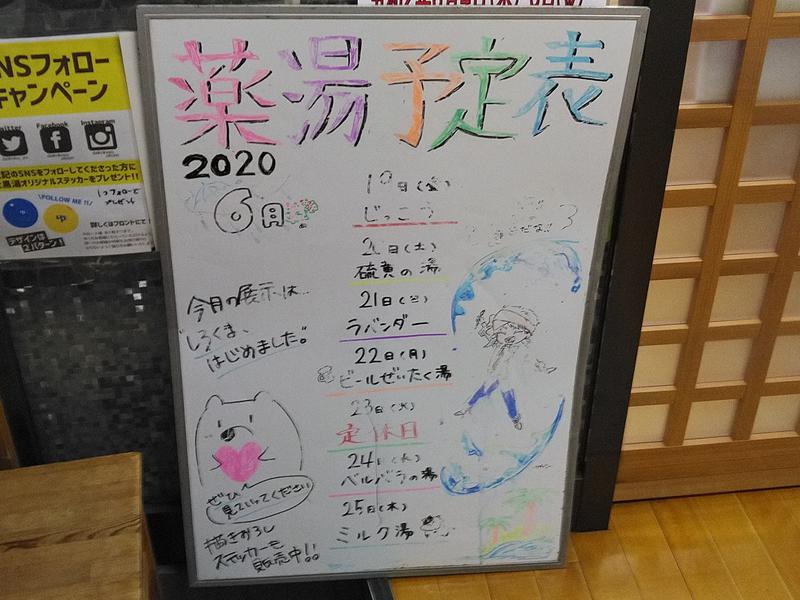 NSフォロー
キャンペーン
Twitter
Facebook
Instagram
記のSNSをフォローしてくださった方に
黒湯オリジナルステッカーをプレゼント!!
FOLLOW ME !!
1フォローで
プレゼント
デザインは
2パターン!
詳しくはフロントにて!
薬湯予定表
2020
6月
今月の展示は…
"しろくま、
はじめました。"
ぜひ
見ていってください
描きおろし
ステッカーも
販売中!!
19日(金)
じっこう
20日(土)
硫黄の湯
21日(日)
ラバンダー
22日(月)
ビールぜいたく湯
23日(火)
定休日
24日(水)
ベルバラの湯
25日(木)
ミルク湯